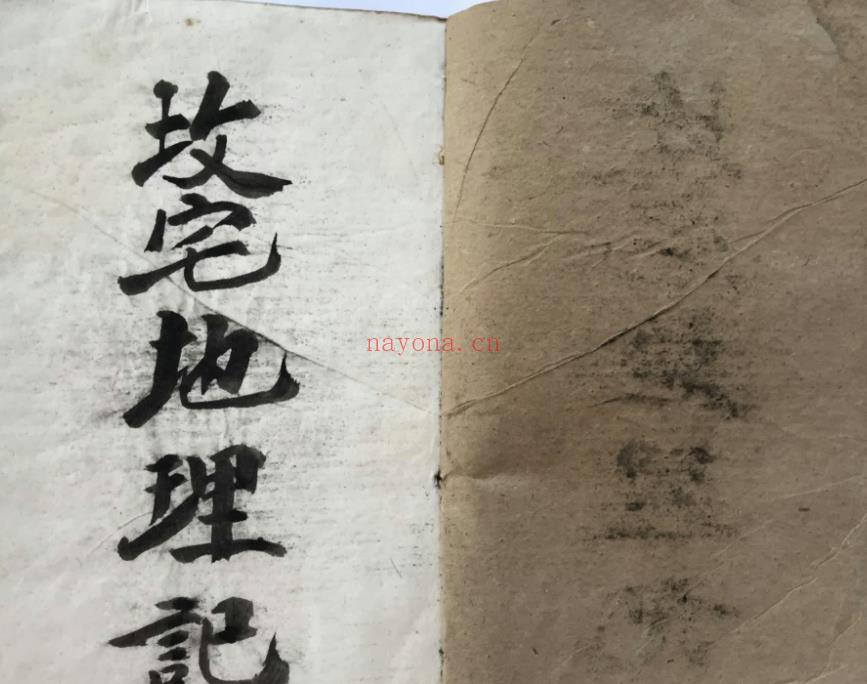 坆宅地理記
nayona.cn